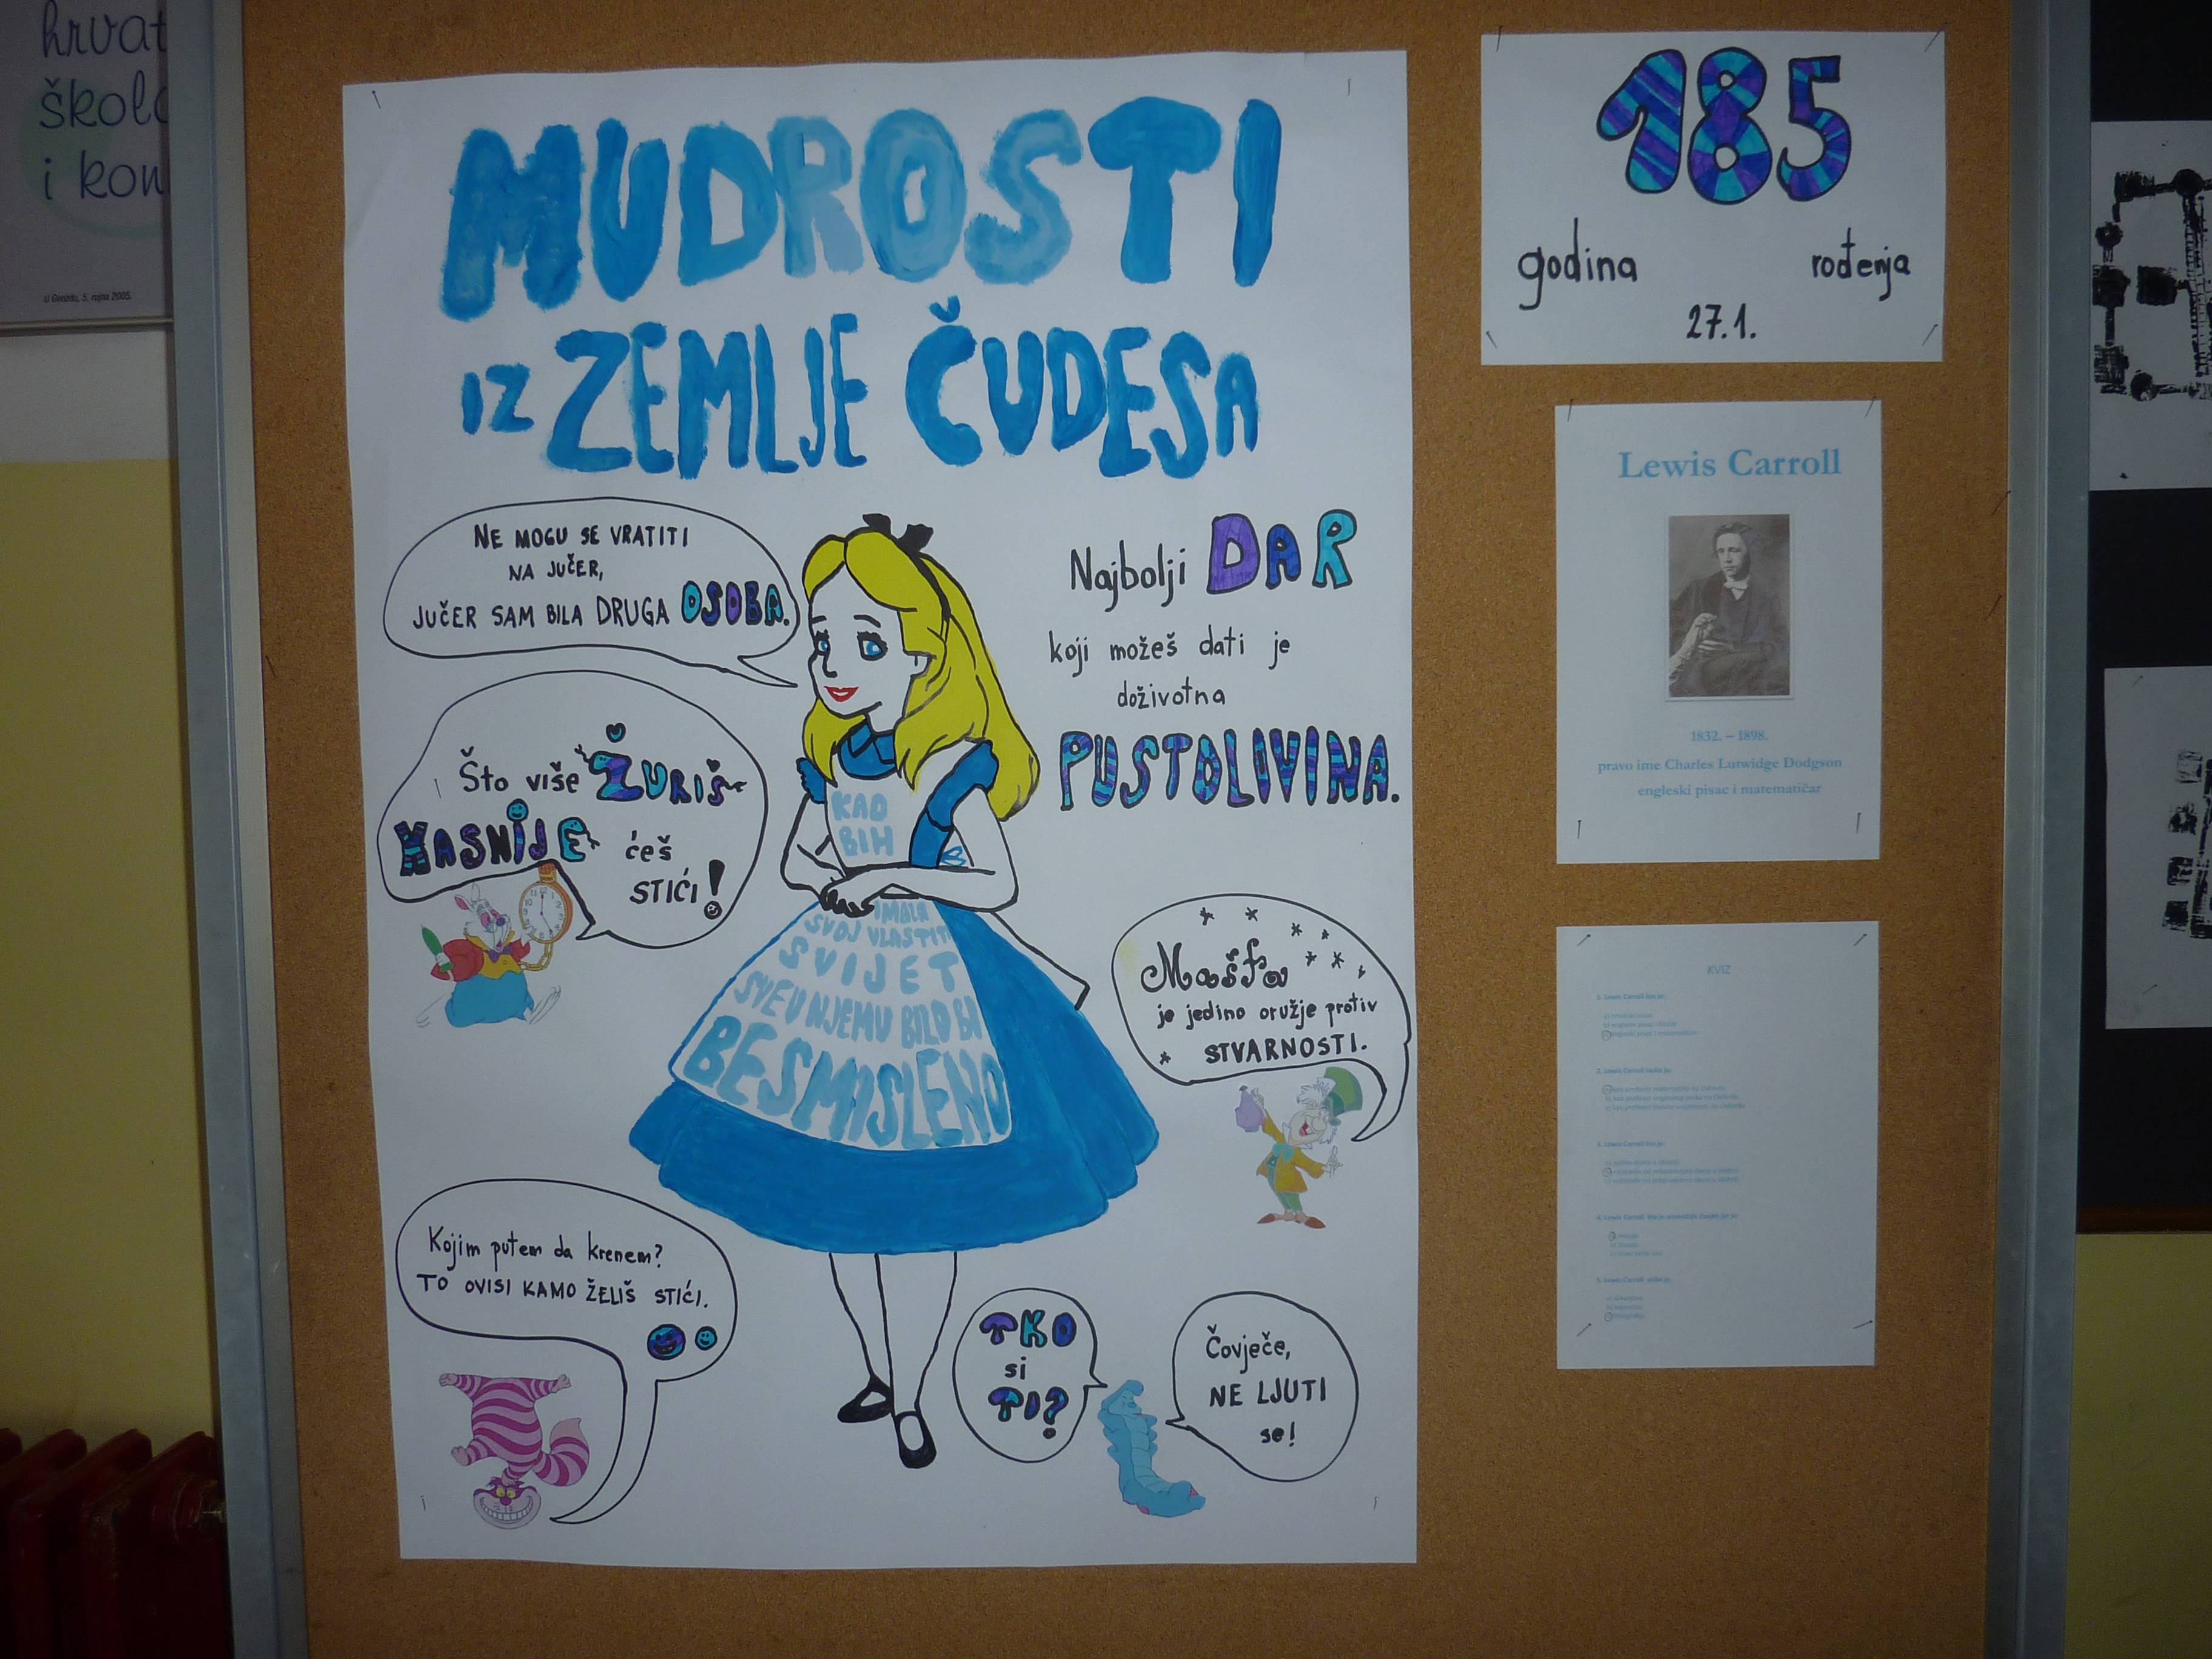 hrvat
škol
i kon
u Gvozdu, 5. rujna 2005.
MUDROSTI
IZ ZEMLJE ČUDESA
NE MOGU SE VRATITI
NA JUČER,
JUČER SAM BILA DRUGA OSOBA.
Najbolji DAR
koji možeš dati je
doživotna
PUSTOLOVINA.
Što više ŽURIŠ
KASNIJE ćeš
STIĆI!
KAD
BIH
IMALA
SVOJ VLASTITI
SVIJET
SVE U NJEMU BILO BI
BESMISLENO
Mašta
je jedino oružje protiv
STVARNOSTI.
Kojim putem da krenem?
TO OVISI KAMO ŽELIŠ STIĆI.
TKO
si
TI?
Čovječe,
NE LJUTI
se!
185
godina rođenja
27.1.
Lewis Carroll
1832. – 1898.
pravo ime Charles Lutwidge Dodgson
engleski pisac i matematičar
KVIZ
1. Lewis Carroll bio je:
2. Lewis Carroll radio je:
3. Lewis Carroll bio je: